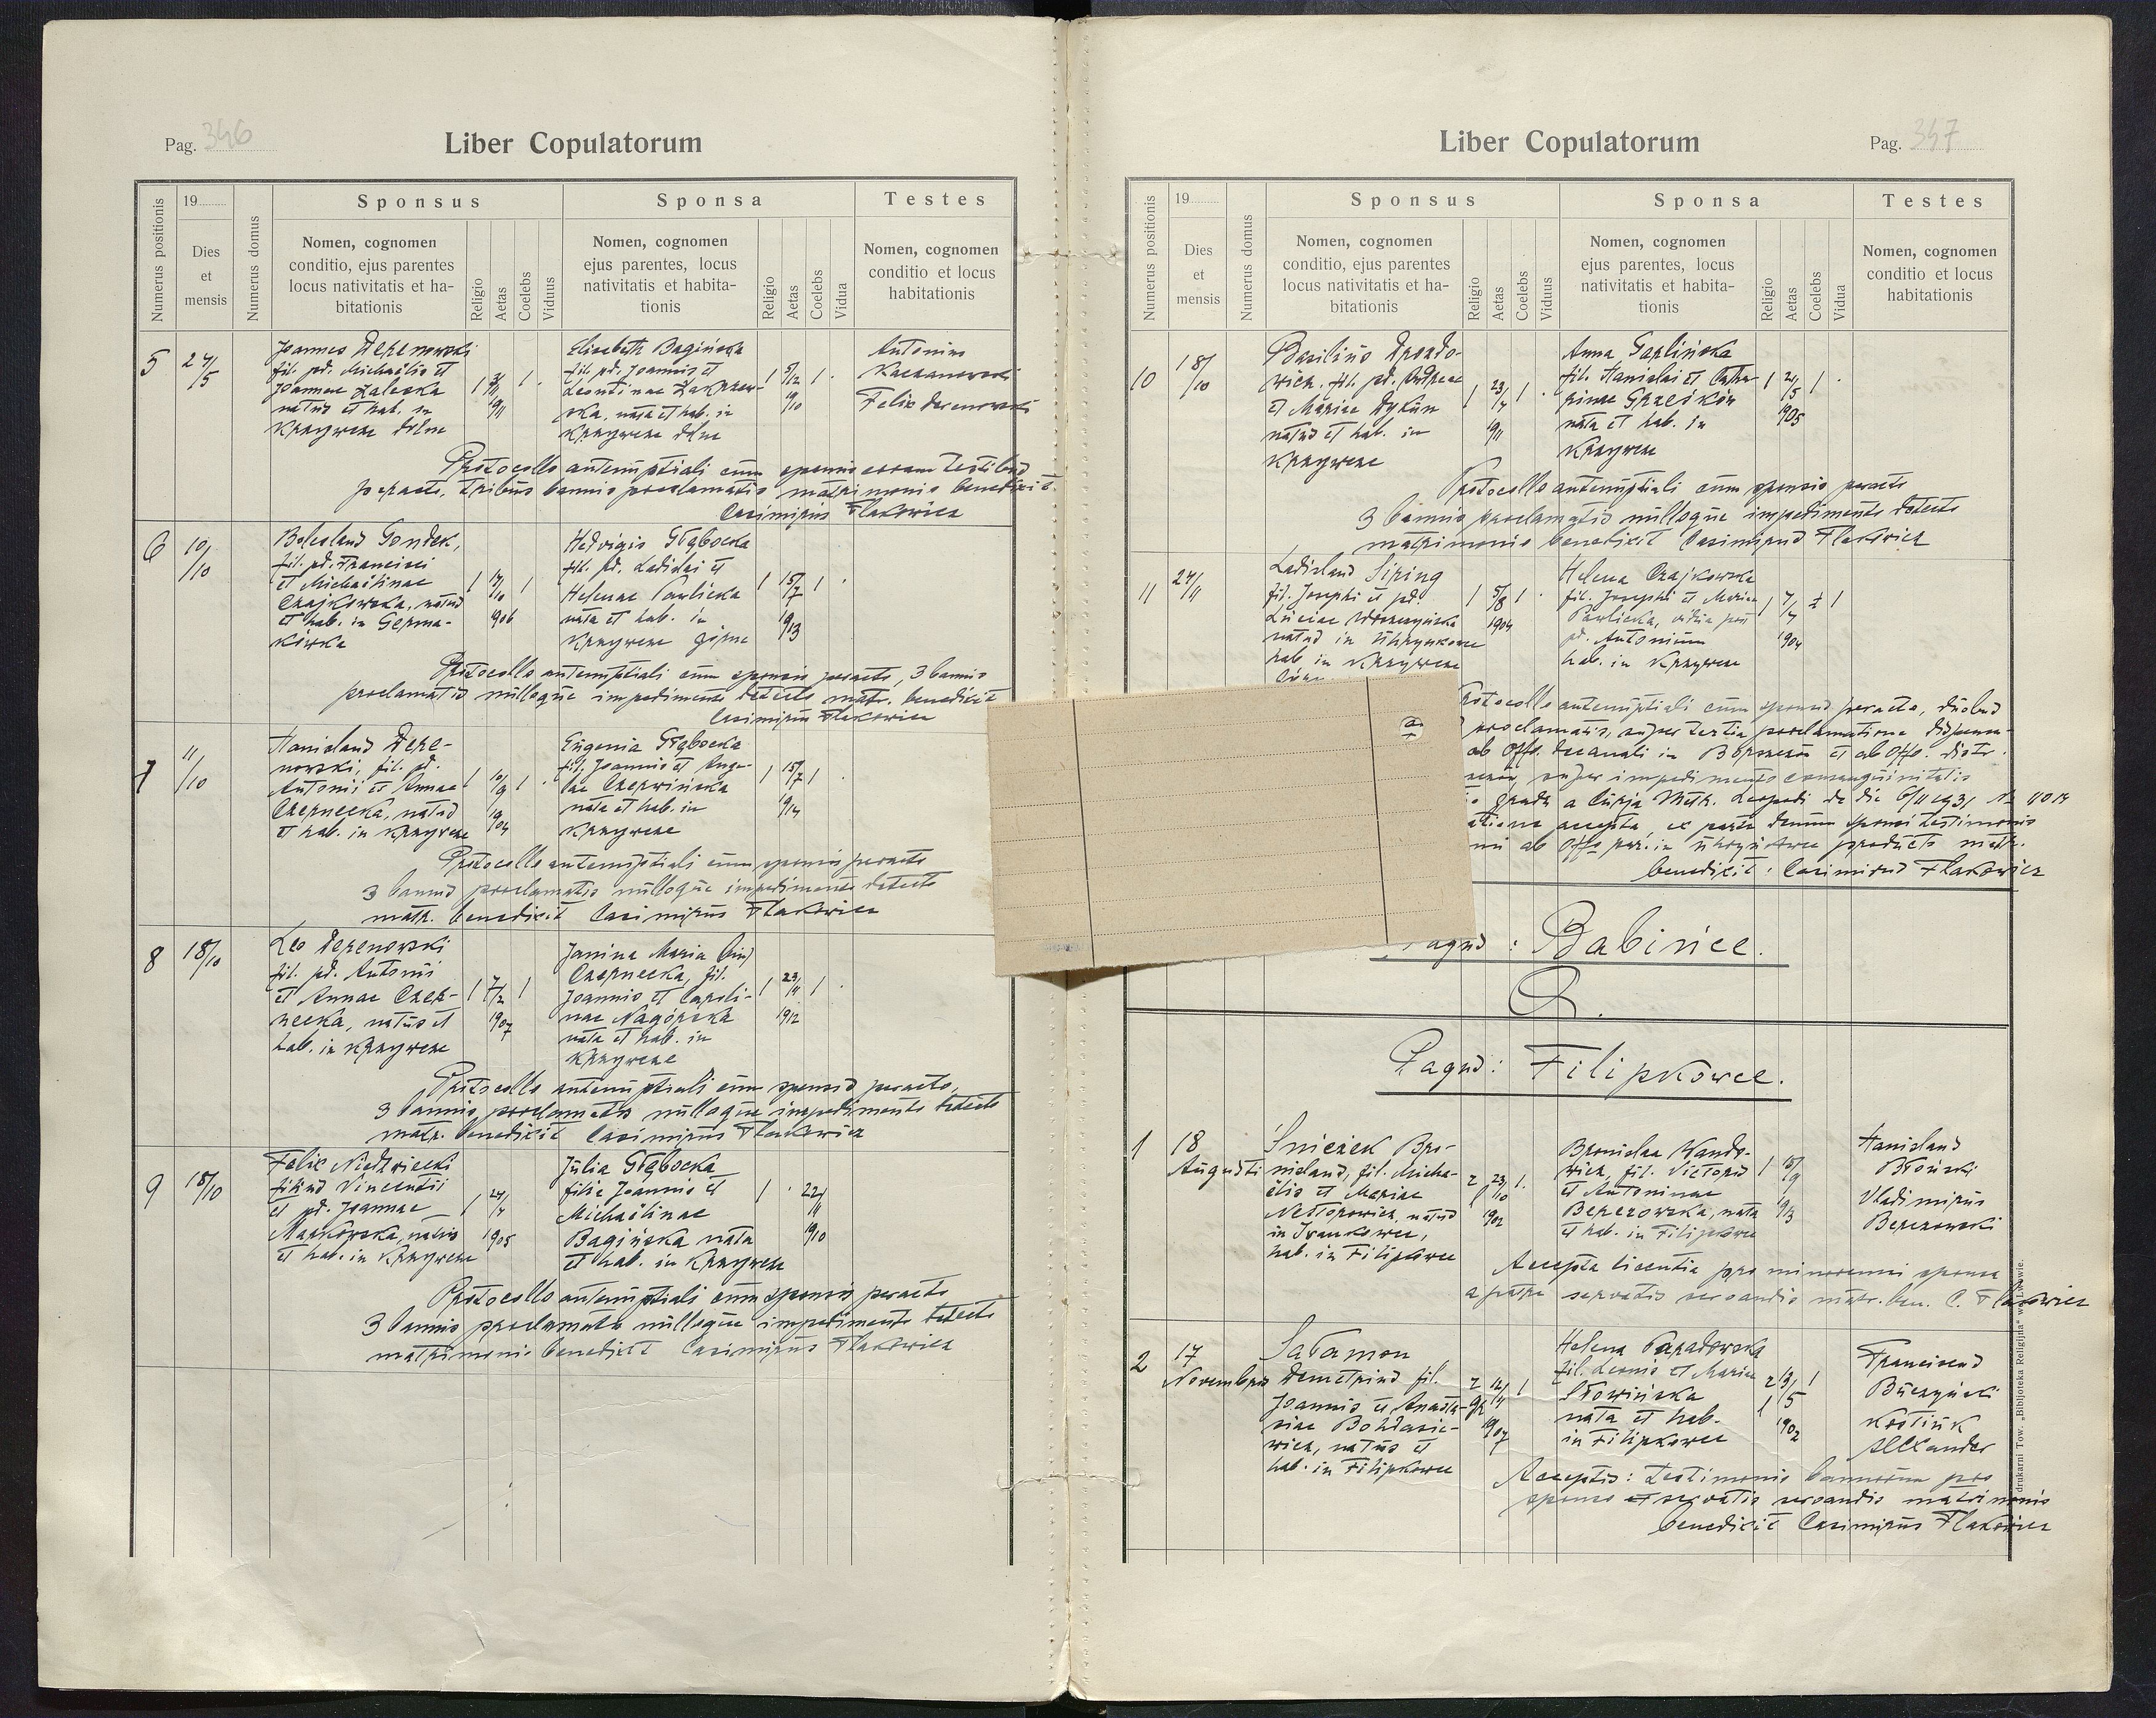 Pag. 346
Liber Copulatorum
Numerus positionis
19
Dies
et
mensis
Numerus domus
Sponsus
Nomen, cognomen
conditio, ejus parentes
locus nativitatis et ha-
bitationis
Religio
Aetas
Coelebs
Viduus
Sponsa
Nomen, cognomen
ejus parentes, locus
nativitatis et habita-
tionis
Religio
Aetas
Coelebs
Vidua
Testes
Nomen, cognomen
conditio et locus
habitationis
5
24/5
Joannes Derenowski
fil. pd. Michaëlis et
Joannae Zaleska
natus et hab. in
Krzywcze dolne
1911
Elisabeth Bagińska
fil. pd. Joannis et
Leontinae Zakrzew-
ska, nata et hab. in
Krzywcze dolne
5/12
1910
Antonius
Kaczanowski
Felix Derenowski
Protocollo antenuptiali cum sponsis coram testibus
peracto, tribus bannis proclamatis matrimonio benedixit.
Casimirus Flakowicz
6
10/10
Boleslaus Gondek,
fil. pd. Francisci
et Michaëlinae
Czajkowska, natus
et hab. in Germa-
kówka
1906
Hedvigis Głębocka
fil. pd. Ladislai et
Helenae Pawlicka
nata et hab. in
Krzywcze górne
15/7
1913
Protocollo antenuptiali cum sponsis peracto, 3 bannis
proclamatis nulloque impedimento detecto matr. benedixit
Casimirus Flakowicz
7
11/10
Stanislaus Dere-
nowski, fil. pd.
Antonii et Annae
Czernecka, natus
et hab. in Krzywcze
10/9
1904
Eugenia Głębocka
fil. Joannis et Ange-
lae Czerwińska
nata et hab. in
Krzywcze
15/7
1914
Protocollo antenuptiali cum sponsis peracto
3 bannis proclamatis nulloque impedimento detecto
matr. benedixit Casimirus Flakowicz
8
18/10
Leo Derenowski
fil. pd. Antonii
et Annae Czer-
necka, natus et
hab. in Krzywcze
7/2
1907
Janina Maria
Czernecka, fil.
Joannis et Caroli-
nae Nagórska
nata et hab. in
Krzywcze
23/11
1912
Protocollo antenuptiali cum sponsis peracto,
3 bannis proclamatis nulloque impedimento detecto
matr. benedixit Casimirus Flakowicz
9
18/10
Felix Niedzwiecki
filius Vincentii
et pd. Joannae
Markowska, natus
et hab. in Krzywcze
24/4
1905
Julia Głębocka
filia Joannis et
Michaëlinae
Bagińska nata
et hab. in Krzywcze
22/11
1910
Protocollo antenuptiali cum sponsis peracto
3 bannis proclamatis nulloque impedimento detecto
matrimonio benedixit Casimirus Flakowicz
Liber Copulatorum
Pag. 347
Numerus positionis
19
Dies
et
mensis
Numerus domus
Sponsus
Nomen, cognomen
conditio, ejus parentes
locus nativitatis et ha-
bitationis
Religio
Aetas
Coelebs
Viduus
Sponsa
Nomen, cognomen
ejus parentes, locus
nativitatis et habita-
tionis
Religio
Aetas
Coelebs
Vidua
Testes
Nomen, cognomen
conditio et locus
habitationis
10
18/10
Basilius Drozdo-
wicz, fil. pd. Andreae
et Mariae Dykun
natus et hab. in
Krzywcze
23/4
1911
Anna Garlińska
fil. Stanislai et Catha-
rinae Grześków
nata et hab. in
Krzywcze
21/5
1905
Protocollo antenuptiali cum sponsis peracto
3 bannis proclamatis nulloque impedimento detecto
matrimonio benedixit Casimirus Flakowicz
11
24/11
Ladislaus Siring
fil. Josephi et pd.
Luciae
natus in Uhrynkowce
hab. in Krzywcze
5/8
1904
Helena Czajkowska
fil. Josephi et Mariae
Pawlicka, vidua post
pd. Antonium
hab. in Krzywcze
7/4
1904
Protocollo antenuptiali cum sponsis peracto, duobus
proclamatis, super tertia proclamatione dispensa-
ab Offo. decanali in Borszczów et ab Offo. distr.
super impedimento consanguinitatis
gradu a Curja Metr. Leopoli de die 6/11 1931 No
accepta, ex parte demum sponsi testimonio
ab Offo par. in Uhrynkowce producto matr.
benedixit: Casimirus Flakowicz
Pagus: Babińce.
Pagus: Filipkowce.
1
18
Augusti
Śnieżek Bro-
nislaus, fil. Micha-
ëlis et Mariae
Nestorowicz, natus
in Iwankowce,
hab. in Filipkowce
23/10
1902
Bronislaa Kando-
wicz, fil. Victoris
et Antoninae
Berezowska, nata
et hab. in Filipkowce
18/9
1913
Stanislaus
Błoński
Vladimirus
Berezowski
Accepta licentia pro minorenni sponsa
a patre servatis servandis matr. ben. C. Flakowicz
2
17
Novembris
Sałamon
Demetrius fil.
Joannis et Anasta-
siae Bohdasie-
wicz, natus et
hab. in Filipkowce
1907
Helena Paradowska
fil. Leonis et Mariae
Słowińska
nata et hab.
in Filipkowce
13/5
1902
Franciscus
Buczyński
Kostiuk
Alexander
Acceptis: testimonio bannorum pro
sponso et servatis servandis matrimonio
benedixit Casimirus Flakowicz
drukarni Tow. „Bibljoteka Religijna" we Lwowie.